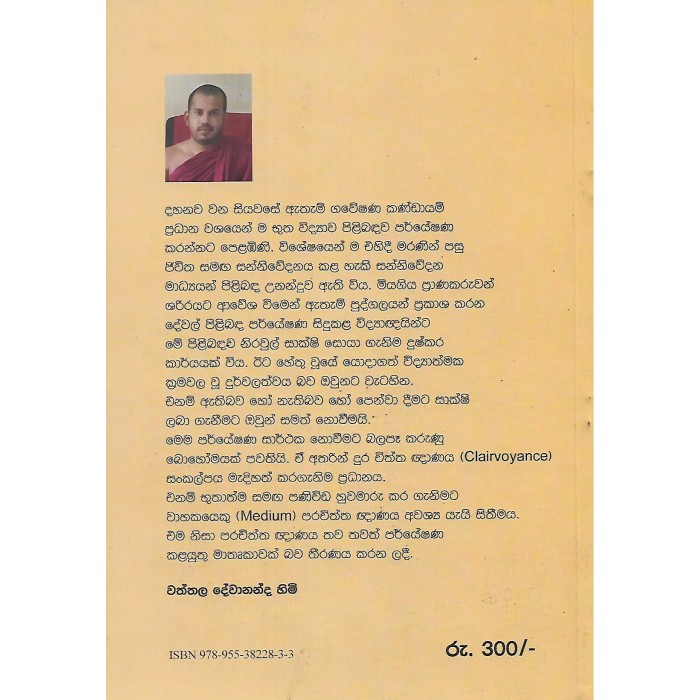 දහනව වන සියවසේ ඇතැම් ගවේෂණ කණ්ඩායම්
ප්‍රධාන වශයෙන් ම භූත විද්‍යාව පිළිබඳව පර්යේෂණ
කරන්නට පෙළඹිණි. විශේෂයෙන් ම එහිදී මරණින් පසු
ජීවිත සමඟ සන්නිවේදනය කළ හැකි සන්නිවේදන
මාධ්‍යයන් පිළිබඳ උනන්දුව ඇති විය. මියගිය ප්‍රාණකරුවන්
ශරීරයට ආවේශ වීමෙන් ඇතැම් පුද්ගලයන් ප්‍රකාශ කරන
දේවල් පිළිබඳ පර්යේෂණ සිදුකළ විද්‍යාඥයින්ට
මේ පිළිබඳව නිරවුල් සාක්ෂි සොයා ගැනීම දුෂ්කර
කාර්යයක් විය. ඊට හේතු වූයේ යොදාගත් විද්‍යාත්මක
ක්‍රමවල වූ දුර්වලත්වය බව ඔවුනට වැටහින.
එනම් ඇතිබව හෝ නැතිබව හෝ පෙන්වා දීමට සාක්ෂි
ලබා ගැනීමට ඔවුන් සමත් නොවීමයි.
මෙම පර්යේෂණ සාර්ථක නොවීමට බලපෑ කරුණු
බොහෝමයක් පවතියි. ඒ අතරින් දුර චිත්ත ඥාණය (Clairvoyance)
සංකල්පය මැදිහත් කරගැනීම ප්‍රධානය.
එනම් භූතාත්ම සමඟ පණිවිඩ හුවමාරු කර ගැනීමට
වාහකයෙකු (Medium) පරචිත්ත ඥාණය අවශ්‍ය යැයි සිතීමය.
එම නිසා පරචිත්ත ඥාණය තව තවත් පර්යේෂණ
කළයුතු මාතෘකාවක් බව තීරණය කරන ලදී.
වත්තල දේවානන්ද හිමි
ISBN 978-955-38228-3-3
රු. 300/-